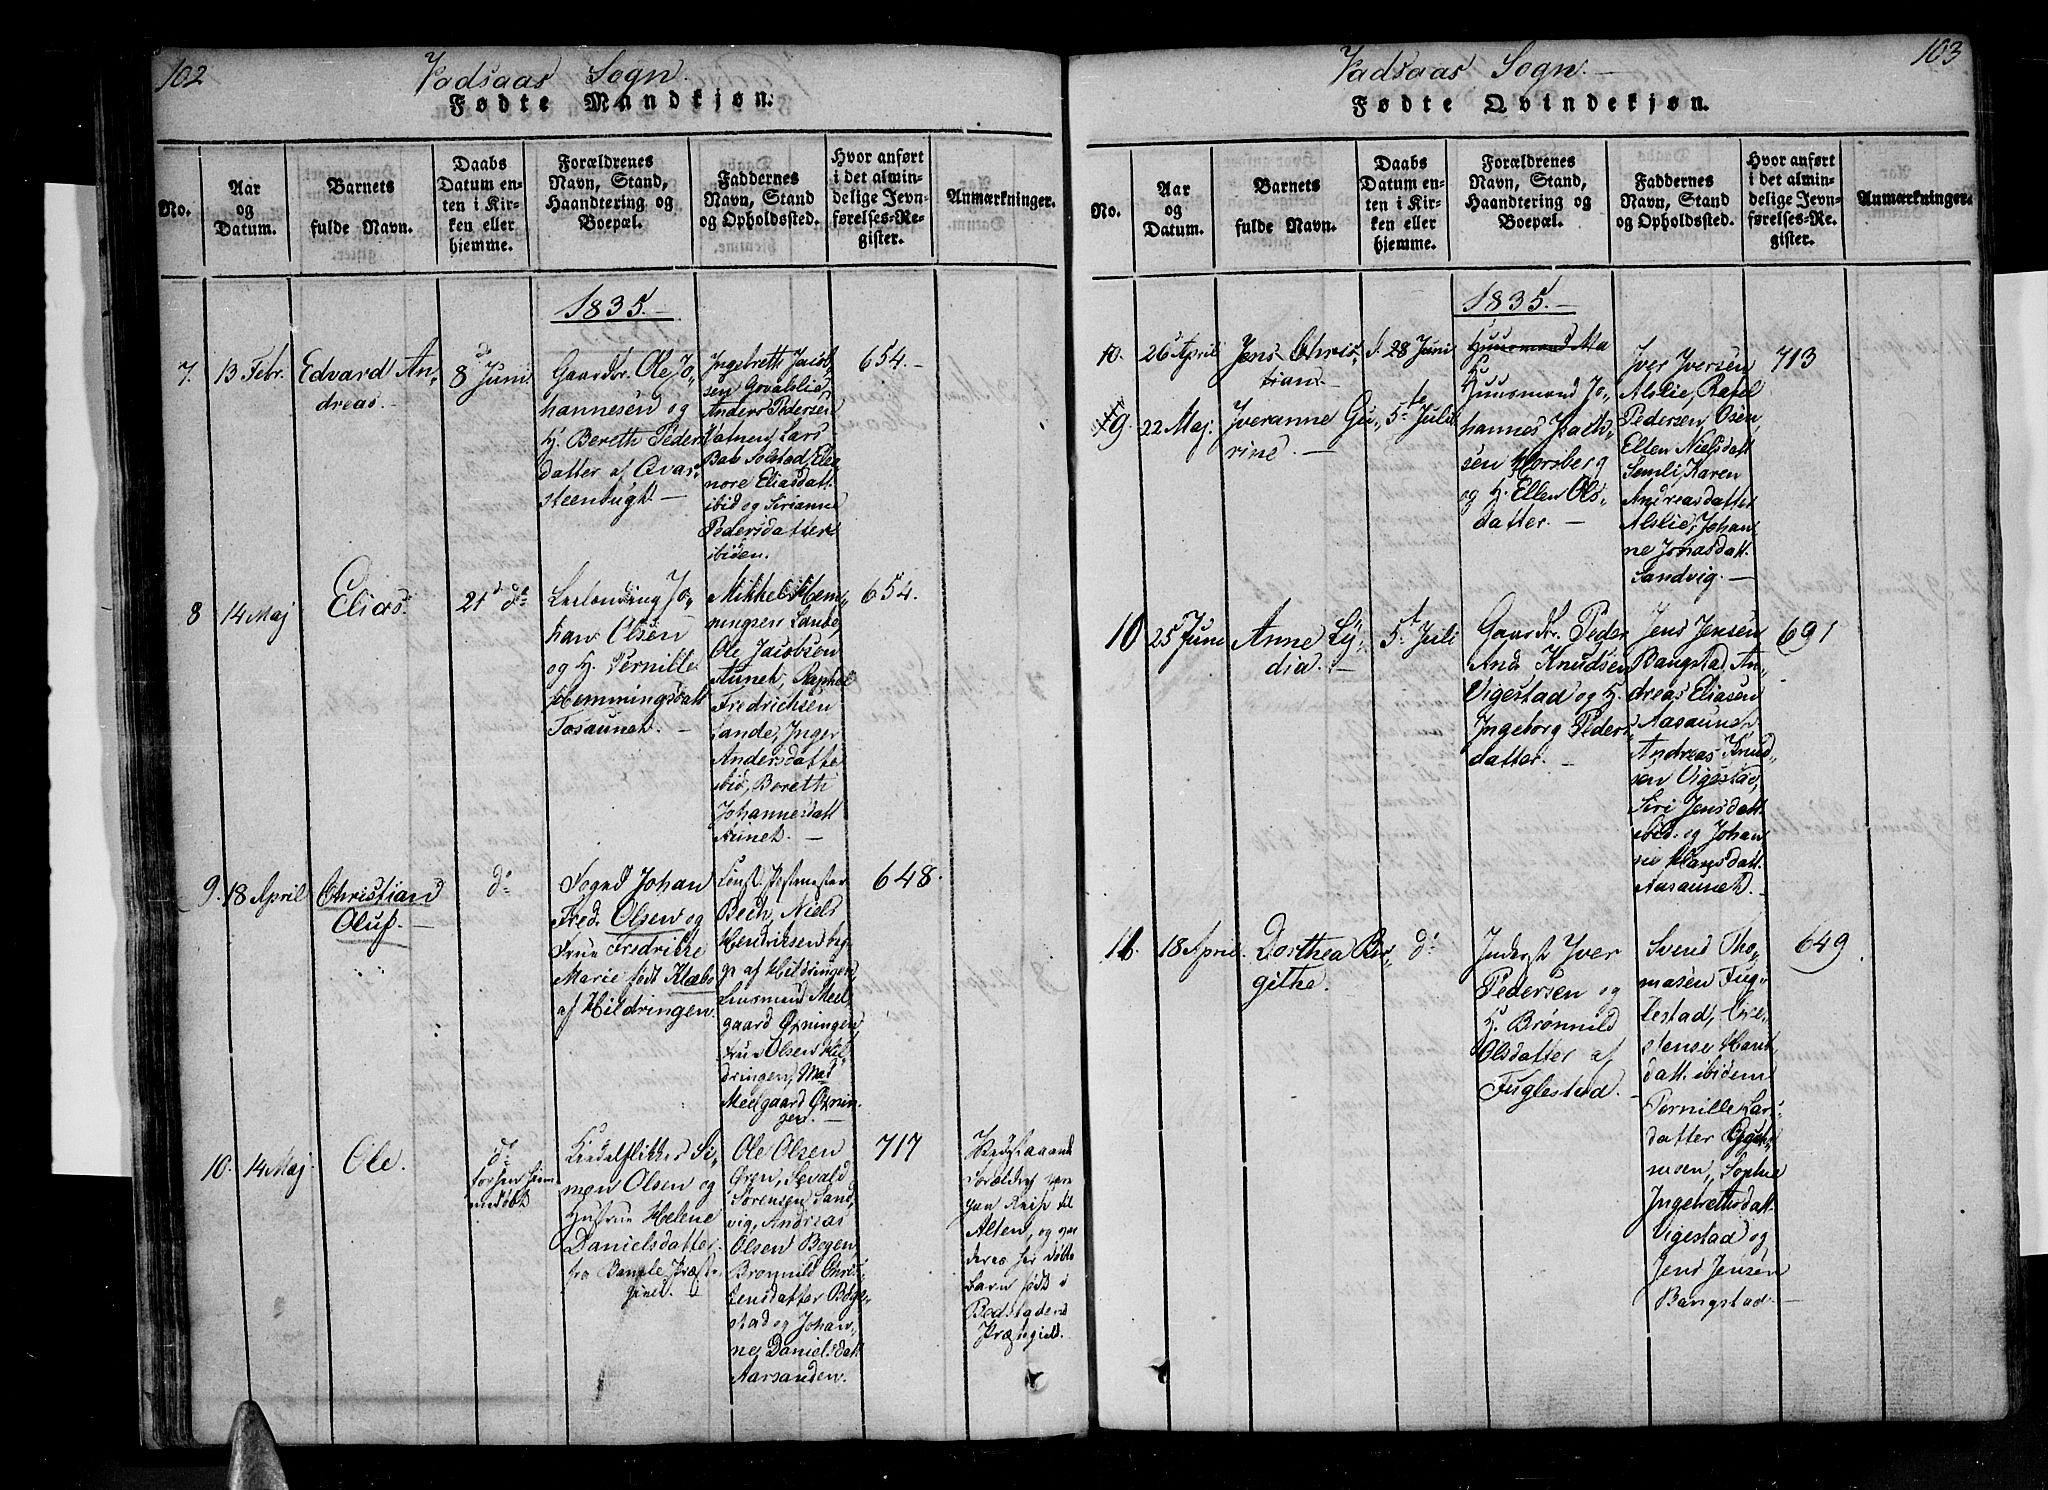 102
Vadsaas Sogn.
Fødte Mandkjøn.
No.
Aar
og
Datum.
Barnets
fulde Navn.
Daabs
Datum en-
ten i Kir-
ken eller
hjemme.
Forældrenes
Navn, Stand,
Haandtering og
Boepæl.
Faddernes
Navn, Stand
og Opholdssted.
Hvor anført
i det almin-
delige Jevn-
førelses-Re-
gister.
Anmærkninger.
1835.
7.
13 Febr.
Edvard An-
dreas.
8de Juni.
Gaardbr. Ole Jo-
hannesen og
H. Bereth Peders
datter af
Ingebreth Jacob-
sen
Anders Pedersen
Vatnen, Lars
Solstad, Ele-
nore Eliasdatt.
ibid og Sirianna
Pedersdatter
ibiden.
654.
8
14 Maj
Elias.
21d do
Jo-
han Olsen
og H. Pernille
Hemmingsdatt
Tosaunet.
Mikkel Hem-
ningsen Lande,
Ole Jacobsen
Aunet, Raphel
Fredrichsen
Lande, Inger
Andersdatte
ibid, Bereth
Johannesdatt
Aunet.
654.
9.
18 April
Christian
Oluf.
do
Foged Johan
Fred. Olsen og
Frue Fredrikke
Marie født Klæbo
af Hildringen.
Const. Postmester
Bech, Niels
Hendriksen
af Hildringen,
Lensmand Meel-
gaard Øxningen,
Frue Olsen Hil-
dringen, Mad
Meelgaard Øxnin-
gen.
648.
10.
14 Maj.
Ole.
do
Kjedelflikker Si-
mon Olsen og
Hustrue Helene
Danielsdatter.
fra Præste-
gield.
Ole Olsen
Øren, Sevald
Sørensen Sand-
vig, Andreas
Olsen Bogen,
Brønnild Chris-
tensdatter Boge-
stad og Johan-
ne Danielsdatt
Aarsanden.
717
Forældre vare
paa Reise til
Alten, og
deres her døbte
Barn født i
Bedstadens
Præstegield.
103
Vadsaas Sogn.
Fødte Qvindekjøn.
No.
Aar
og
Datum.
Barnets
fulde Navn.
Daabs
Datum en-
ten i Kir-
ken eller
hjemme.
Forældrenes
Navn, Stand,
Haandtering og
Boepæl.
Faddernes
Navn, Stand
og Opholdssted.
Hvor anført
i det almin-
delige Jevn-
førelses-Re-
gister.
Anmærkninger.
1835.
10.
26 April
Jens Chris-
tian
d. 28 Juni
Huusmand Ma
9.
22 Maj.
Iveranne Gu-
rine.
5te Juli
Huusmand Jo-
hannes
sen Horsberg
og H. Ellen Ols-
datter.
Iver Iversen
Alslie, Rafel
Pedersen, Osen
Ellen Nielsdatt
Semli, Karen
Andreasdatter
Alslie, Johan-
ne Jonasdatt.
Sandvig.
713
10
25 Juni
Anne Ly-
dia.
5te Juli
Gaardbr. Peder
And. Knudsen
Vigestad og H.
Ingeborg Peders
datter.
Jens Jensen
Bangstad, An-
dreas Eliasen
Aasaunet
Andreas Knud-
sen Vigestad,
Siri Jensdatt
ibid. og Johan-
ne Hansdatt
Aasaunet.
691
11.
18 April.
Dorthea Bir-
githe.
do
Inderst Iver
Pedersen og
H. Brønnild
Olsdatter af
Fuglestad.
Svend Tho-
masen Fug-
lestad,
datt. ibidem
Pernille Lars-
datter
moen, Sophie
Ingebretsdatt
Vigestad og
Jens Jensen
Bangstad.
649